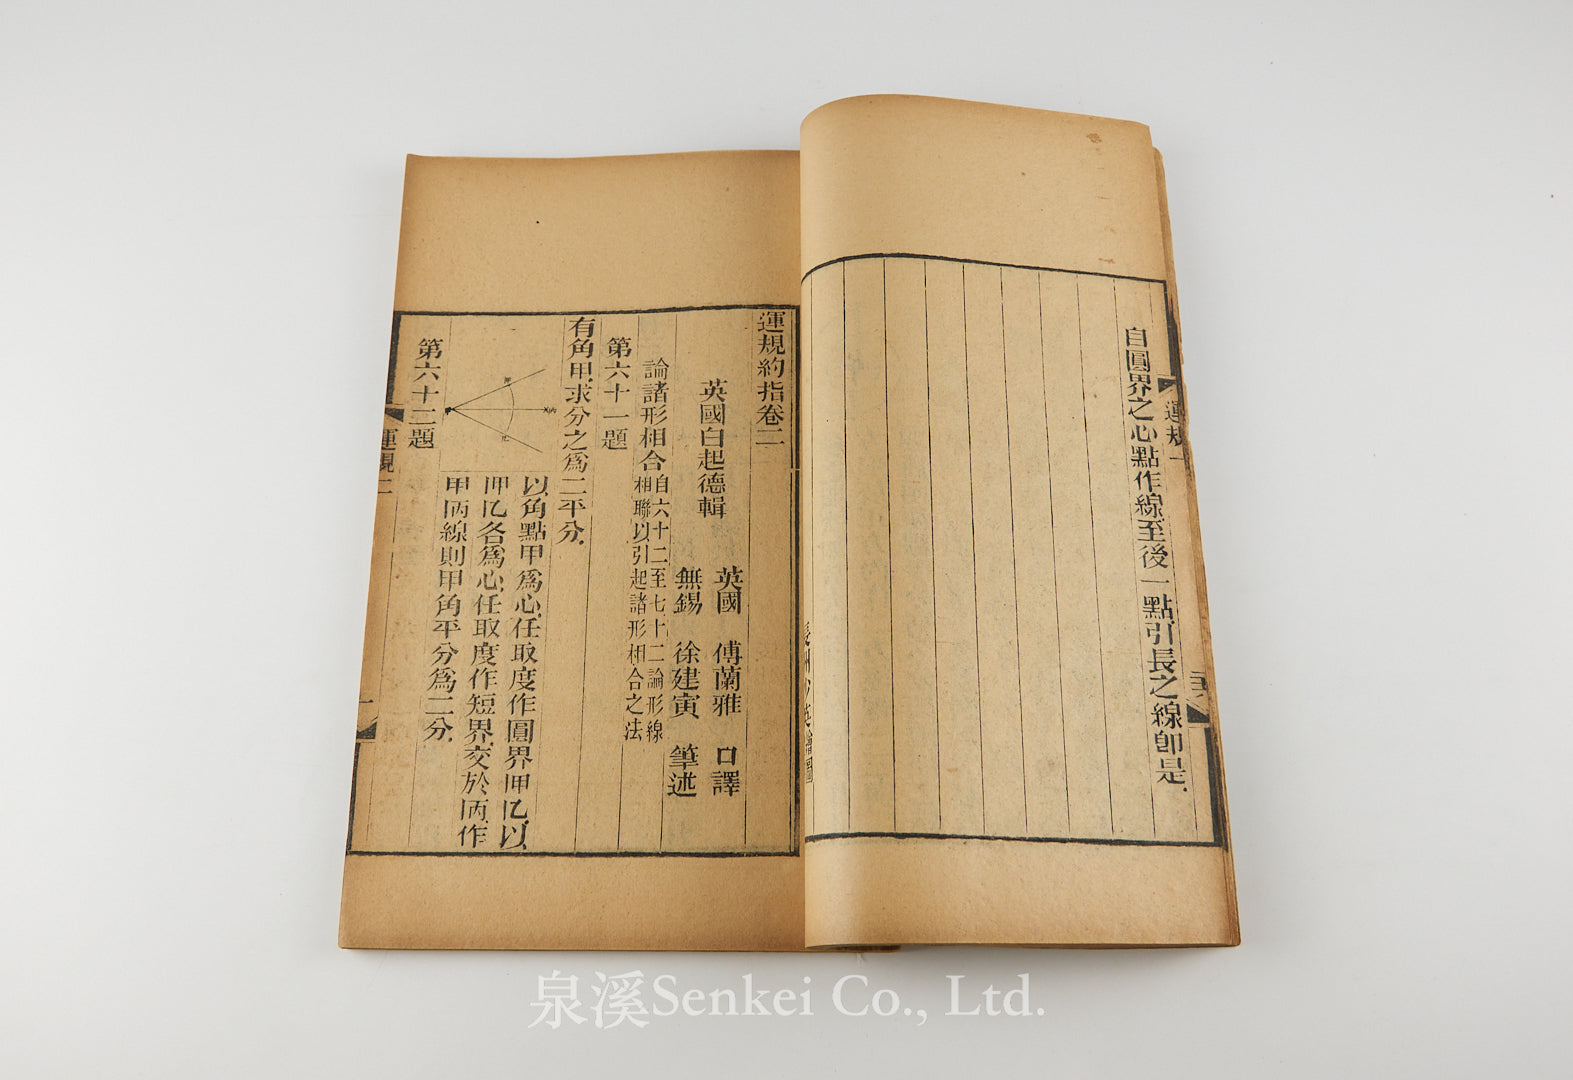 自圓界之心點作線至後一點引長之線卽是
運規一
運規約指卷二
英國白起德輯
英國 傅蘭雅 口譯
無錫 徐建寅 筆述
論諸形相合自六十二至七十二論形線
相聯以引起諸形相合之法
第六十一題
有角甲求分之爲二平分
以角點甲爲心任取度作圓界呷𠮙以
呷𠮙各爲心任取度作短界交於㕫作
甲㕫線則甲角平分爲二分
第六十二題
運規二
泉溪Senkei Co., Ltd.